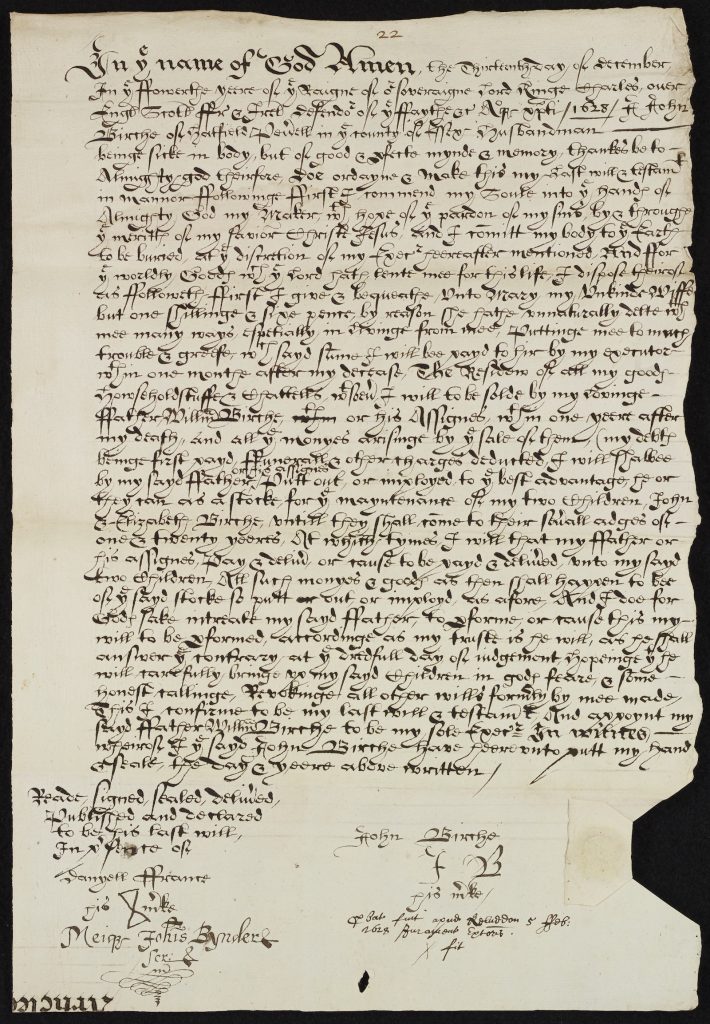 22
In yͤ name of God Amen, the Thirteenth day of December
In yͤ ffowerthe yeere of yͤ Raigne of oʳ soveraigne Lord Kynge Charles, over
Engl: Scotl: ffr: & Irel: defendoʳ of yͤ ffaythe &c Aoqʒ Xpti /1628/ I John
Birche of Hatfield Peverell in yͤ county of Essex Husbandman
beinge sicke in body, but of good & pfecte mynde & memory, thankes be to
Almighty god therfore, doe ordayne & make this my last will & testamᵗ
in mannor ffollowinge ffirst I commend my Soule into yͤ hands of
Almighty God my Maker, wᵗʰ hope of yͤ pardon of my sins, by & through
yͤ meritts of my savior Christe Jesus, and I comitt my body to yͤ Earth
to be buried, at yͤ discretion of my Execʳ heereafter mentioned, And ffor
yͤ worldly Goods wᶜʰ yͤ lord hath lente mee for this life, I dispose thereof
as ffolloweth ffirst I give & bequeathe, unto Mary my Unkinde Wiffe
but one shillinge & sixe pence, by reason she hathe unnaturally delte wᵗʰ
mee many ways, espetially in livinge from mee, Puttinge mee to much
trouble & greefe, wᶜʰ sayd sume I will bee payd to hir by my executor
wᵗʰin one monthe after my decease, The Residew of all my goods
Howseholdstuffe & Chattells, I will to be solde by my lovinge
ffather Willm̃ Birche, or his Assignes, wᵗʰin one yeere after
my death, and all yͤ monyes arisinge by yͤ sale of them (my debts
beinge first payd, ffunerall & other charges deducted, I will shalbee
by my sayd ffather, or his assignes Putt out or imployed to yͤ best advantage, he or
they can as a stocke for yͤ maintenance of my two Children, John
& Elizabeth Birche, untill they shall come to their sevall adges of
one & twenty yeeres, At which tymes I will that my ffather or
his assignes, Pay & delivʳ, or cause to be payd & delived, unto my sayd
two Children, All such monyes & goods as then shall happen to bee
of yͤ sayd stocke so putt out or imployd, as afore, And I doe for
Gods sake intreate my sayd ffather, to pforme or cause this my
will to be pformed, accordinge as my truste is he will, as he shall
answer yͤ contrary, at yͤ dredfull day of iudgement, hopeinge yͭ he
will carefully bringe up my sayd Children in gods feare, & some
honest callinge, Revokinge all other wills formly by mee made,
This I confirme to be my last will & testamᵗ And appoynt my
sayd ffather Willm̃ Birche to be my sole Execʳ In witnes
whereof I yͤ sayd John Birche have heereunto putt my hand
& seale, the day & yeere above written /
Reade, signed, sealed, delived,
Published and declared
to be his last will,
In yͤ psence of
Danyell ffrance
his mʳke
John Birche
I B
his mʳke,
pbat fuit apud Kelvedon 5 ffeb:
1628 Juramento Extoris.